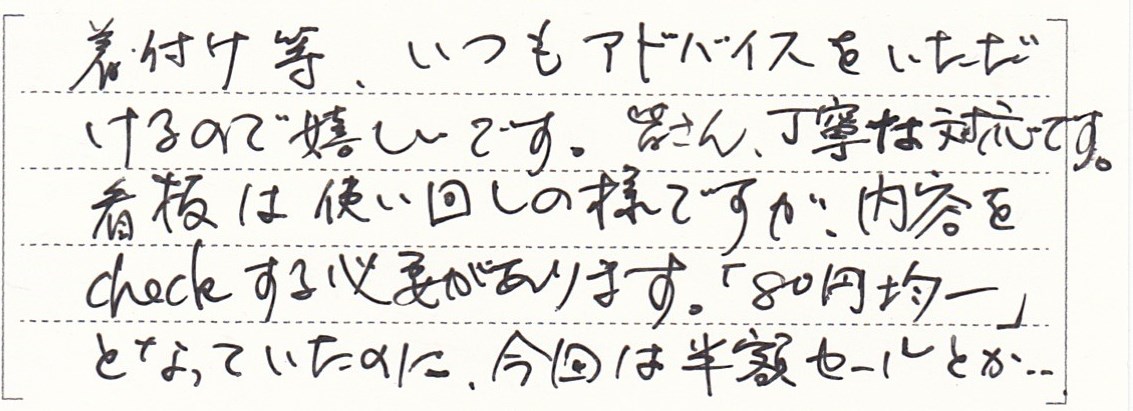 着付け等、いつもアドバイスをいただ
けるので嬉しいです。皆さん、丁寧な対応です。
看板は使い回しの様ですが、内容を
checkする必要があります。「80円均一」
となっていたのに、今回は半額セールとか…